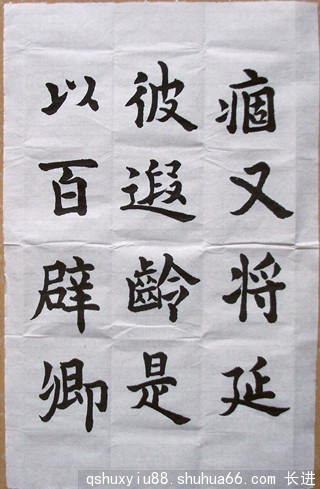 痼又将延
彼遐齡是
以百辟卿
qshuxyiu88.shuhua66.com 长进